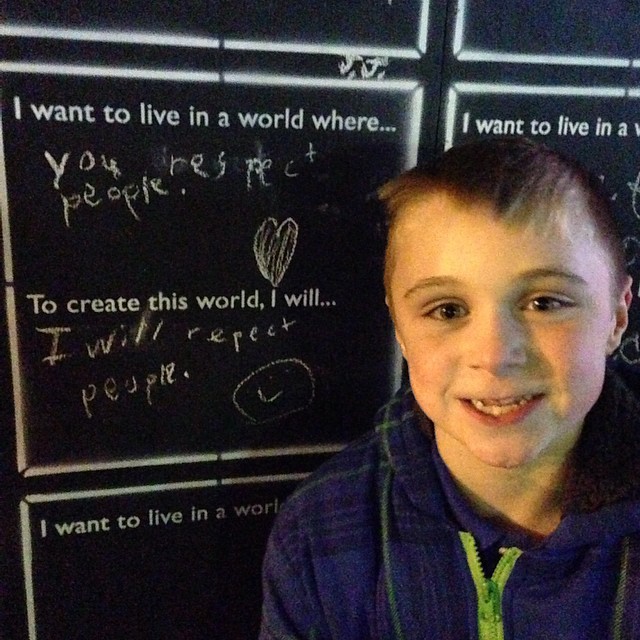 I want to live in a world where...
you respect
people.
To create this world, I will...
I will repect
people.
I want to live in a
I want to live in a worl